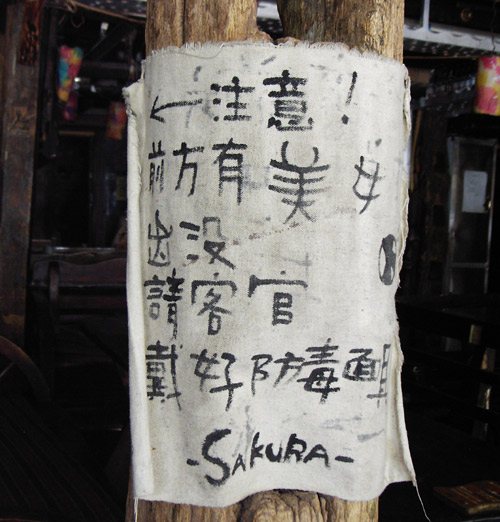 ←注意!
前方有美女
出没
請客官
戴好防毒面具
-SAKURA-